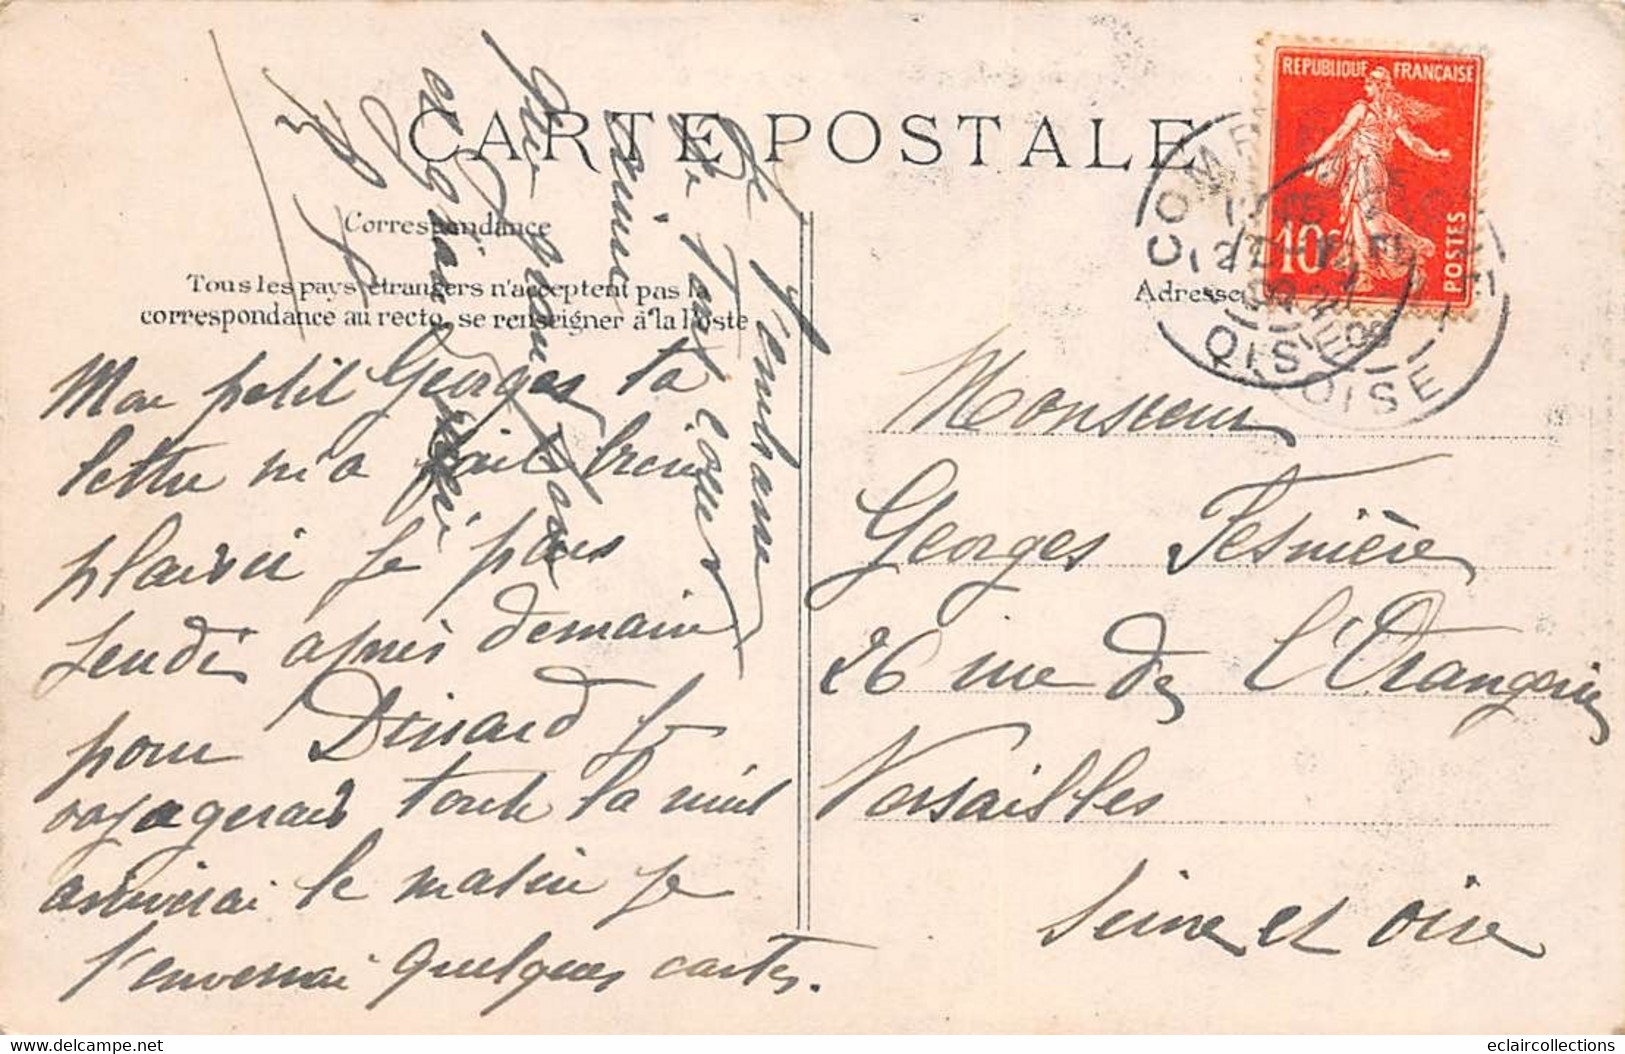 CARTE POSTALE
Correspondance
Tous les pays étrangers n'acceptent pas la
correspondance au recto, se renseigner à la Poste
Mon petit Georges ta
lettre m'a fait bien
plaisir je pars
Jeudi après demain
pour Dinard je
voyagerais toute la nuit
arriverai le matin je
t'enverrai quelques cartes.
Je t'embrasse
de tout cœur
REPUBLIQUE FRANÇAISE
10c
POSTES
OISE
Adresse
Monsieur
Georges Fesnière
26 rue de l'Orangerie
Versailles
Seine et Oise
www.delcampe.net
eclaircollections